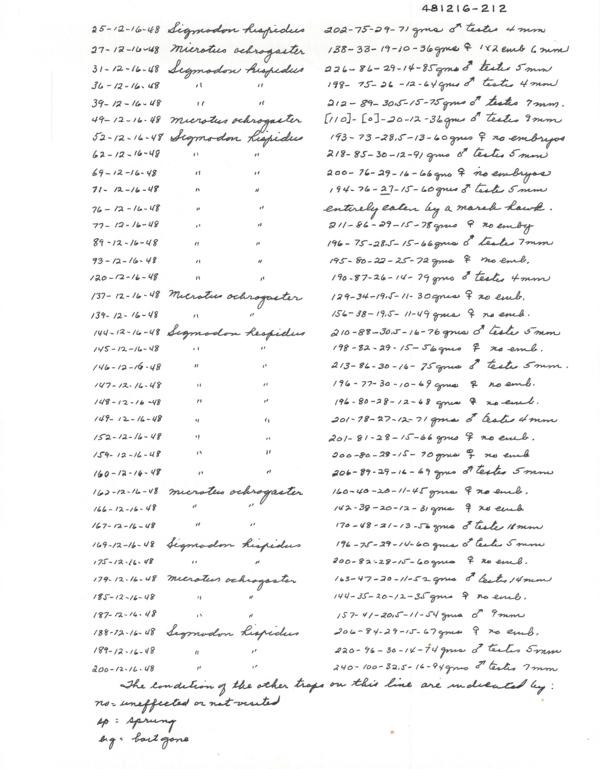 481216-212
25-12-16-48 Sigmodon hispidus 202-75-29-71 gms ♂ testes 4 mm
27-12-16-48 Microtus ochrogaster 138-33-19-10-36 gms ♀ 1x2 emb 6 mm
31-12-16-48 Sigmodon hispidus 226-86-29-14-85 gms ♂ testes 5 mm
36-12-16-48 " " 198-75-26-12-64 gms ♂ testes 4 mm
39-12-16-48 " " 212-89-30.5-15-75 gms ♂ testes 7 mm.
49-12-16-48 Microtus ochrogaster [110]-[0]-20-12-36 gms ♂ testes 9 mm
52-12-16-48 Sigmodon hispidus 193-73-28.5-13-60 gms ♀ no embryos
62-12-16-48 " " 218-85-30-12-91 gms ♂ testes 5 mm
69-12-16-48 " " 200-76-29-16-66 gms ♀ no embryos
71-12-16-48 " " 194-76-27-15-60 gms ♂ testes 5 mm
76-12-16-48 " " entirely eaten by a marsh hawk.
77-12-16-48 " " 211-86-29-15-78 gms ♀ no emby
89-12-16-48 " " 196-75-28.5-15-66 gms ♂ testes 7 mm
93-12-16-48 " " 195-80-22-25-72 gms ♀ no emb.
120-12-16-48 " " 190-87-26-14-79 gms ♂ testes 4 mm
137-12-16-48 Microtus ochrogaster 129-34-19.5-11-30 gms ♀ no emb.
139-12-16-48 " " 156-38-19.5-11-49 gms ♀ no emb.
144-12-16-48 Sigmodon hispidus 210-88-30.5-16-76 gms ♂ testes 5 mm
145-12-16-48 " " 198-82-29-15-56 gms ♀ no emb.
146-12-16-48 " " 213-86-30-16-75 gms ♂ testes 5 mm.
147-12-16-48 " " 196-77-30-10-69 gms ♀ no emb.
148-12-16-48 " " 196-80-28-12-68 gms ♀ no emb.
149-12-16-48 " " 201-78-27-12-71 gms ♂ testes 4 mm
152-12-16-48 " " 201-81-28-15-66 gms ♀ no emb.
159-12-16-48 " " 200-80-28-15-70 gms ♀ no emb
160-12-16-48 " " 206-89-29-16-69 gms ♂ testes 5 mm
162-12-16-48 Microtus ochrogaster 160-40-20-11-45 gms ♀ no emb.
166-12-16-48 " " 142-38-20-12-31 gms ♀ no emb
167-12-16-48 " " 170-48-21-13-56 gms ♂ testes 18 mm
169-12-16-48 Sigmodon hispidus 196-75-29-14-60 gms ♂ testes 5 mm
175-12-16-48 " " 200-82-28-15-60 gms ♀ no emb.
179-12-16-48 Microtus ochrogaster 163-47-20-11-52 gms ♂ testes 14 mm
185-12-16-48 " " 144-35-20-12-35 gms ♀ no emb.
187-12-16-48 " " 157-41-20.5-11-54 gms ♂ 9 mm
188-12-16-48 Sigmodon hispidus 206-84-29-15-67 gms ♀ no emb.
189-12-16-48 " " 220-96-30-14-74 gms ♂ testes 5 mm
200-12-16-48 " " 240-100-32.5-16-94 gms ♂ testes 7 mm
The condition of the other traps on this line are indicated by:
no = uneffected or not visited
sp = sprung
bg = bait gone